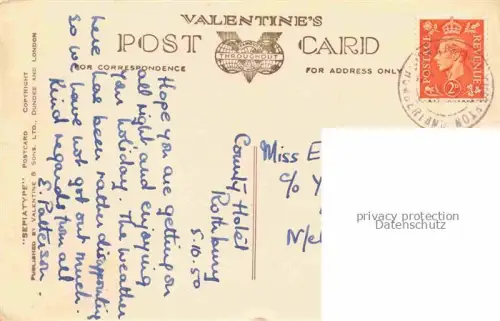 VALENTINE'S
POST CARD
FOR CORRESPONDENCE
THROUGHOUT
FOR ADDRESS ONLY
POSTAGE
REVENUE
2D
"SEPIATYPE" POSTCARD. COPYRIGHT
PUBLISHED BY VALENTINE & SONS. LTD., DUNDEE AND LONDON
County Hotel
Rothbury
5.10.50
Hope you are getting on
all right and enjoying
your holiday. The weather
here has been rather disappointing
so we have not got out much.
Kind regards from all
E. Patterson.
Miss E
c/o Y
N/c
privacy protection
Datenschutz